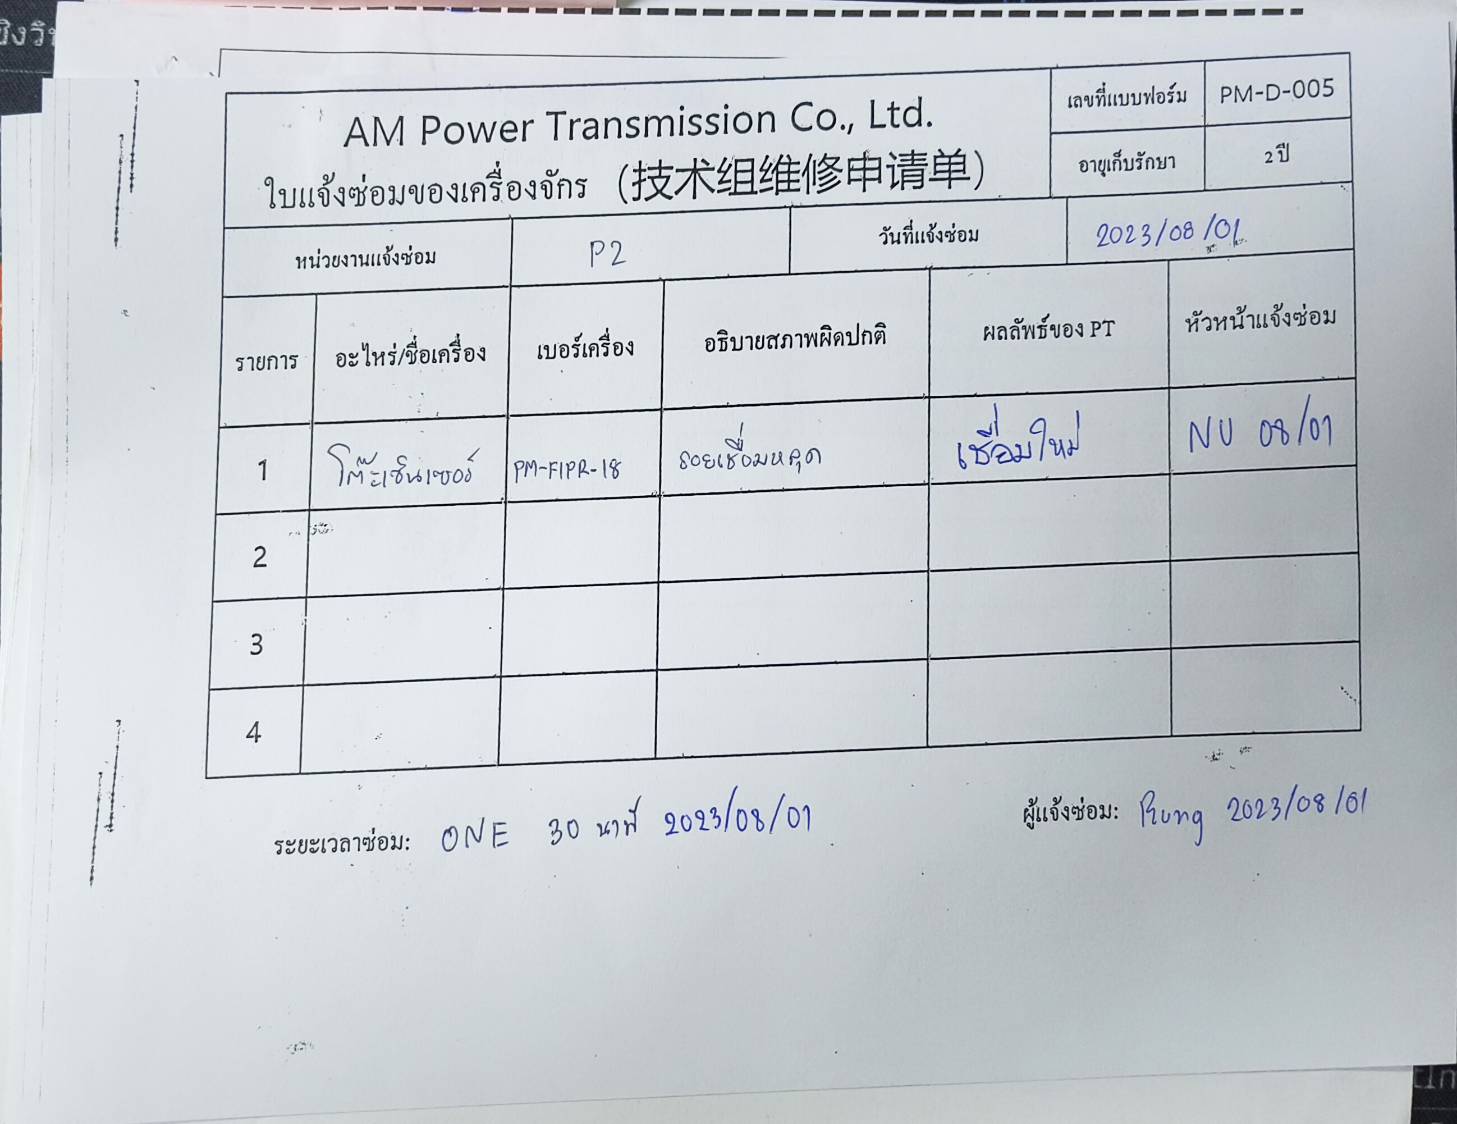 AM Power Transmission Co., Ltd.
ใบแจ้งซ่อมของเครื่องจักร (技术组维修申请单)
เลขที่แบบฟอร์ม PM-D-005
อายุเก็บรักษา 2 ปี
หน่วยงานแจ้งซ่อม P2 วันที่แจ้งซ่อม 2023/08/01
รายการ อะไหร่/ชื่อเครื่อง เบอร์เครื่อง อธิบายสภาพผิดปกติ ผลลัพธ์ของ PT หัวหน้าแจ้งซ่อม
1 โต๊ะเซ็นเซอร์ PM-FIPR-18 รอยเชื่อมหลุด เชื่อมใหม่ NU 08/01
2
3
4
ระยะเวลาซ่อม: ONE 30 นาที 2023/08/01
ผู้แจ้งซ่อม: Rung 2023/08/01